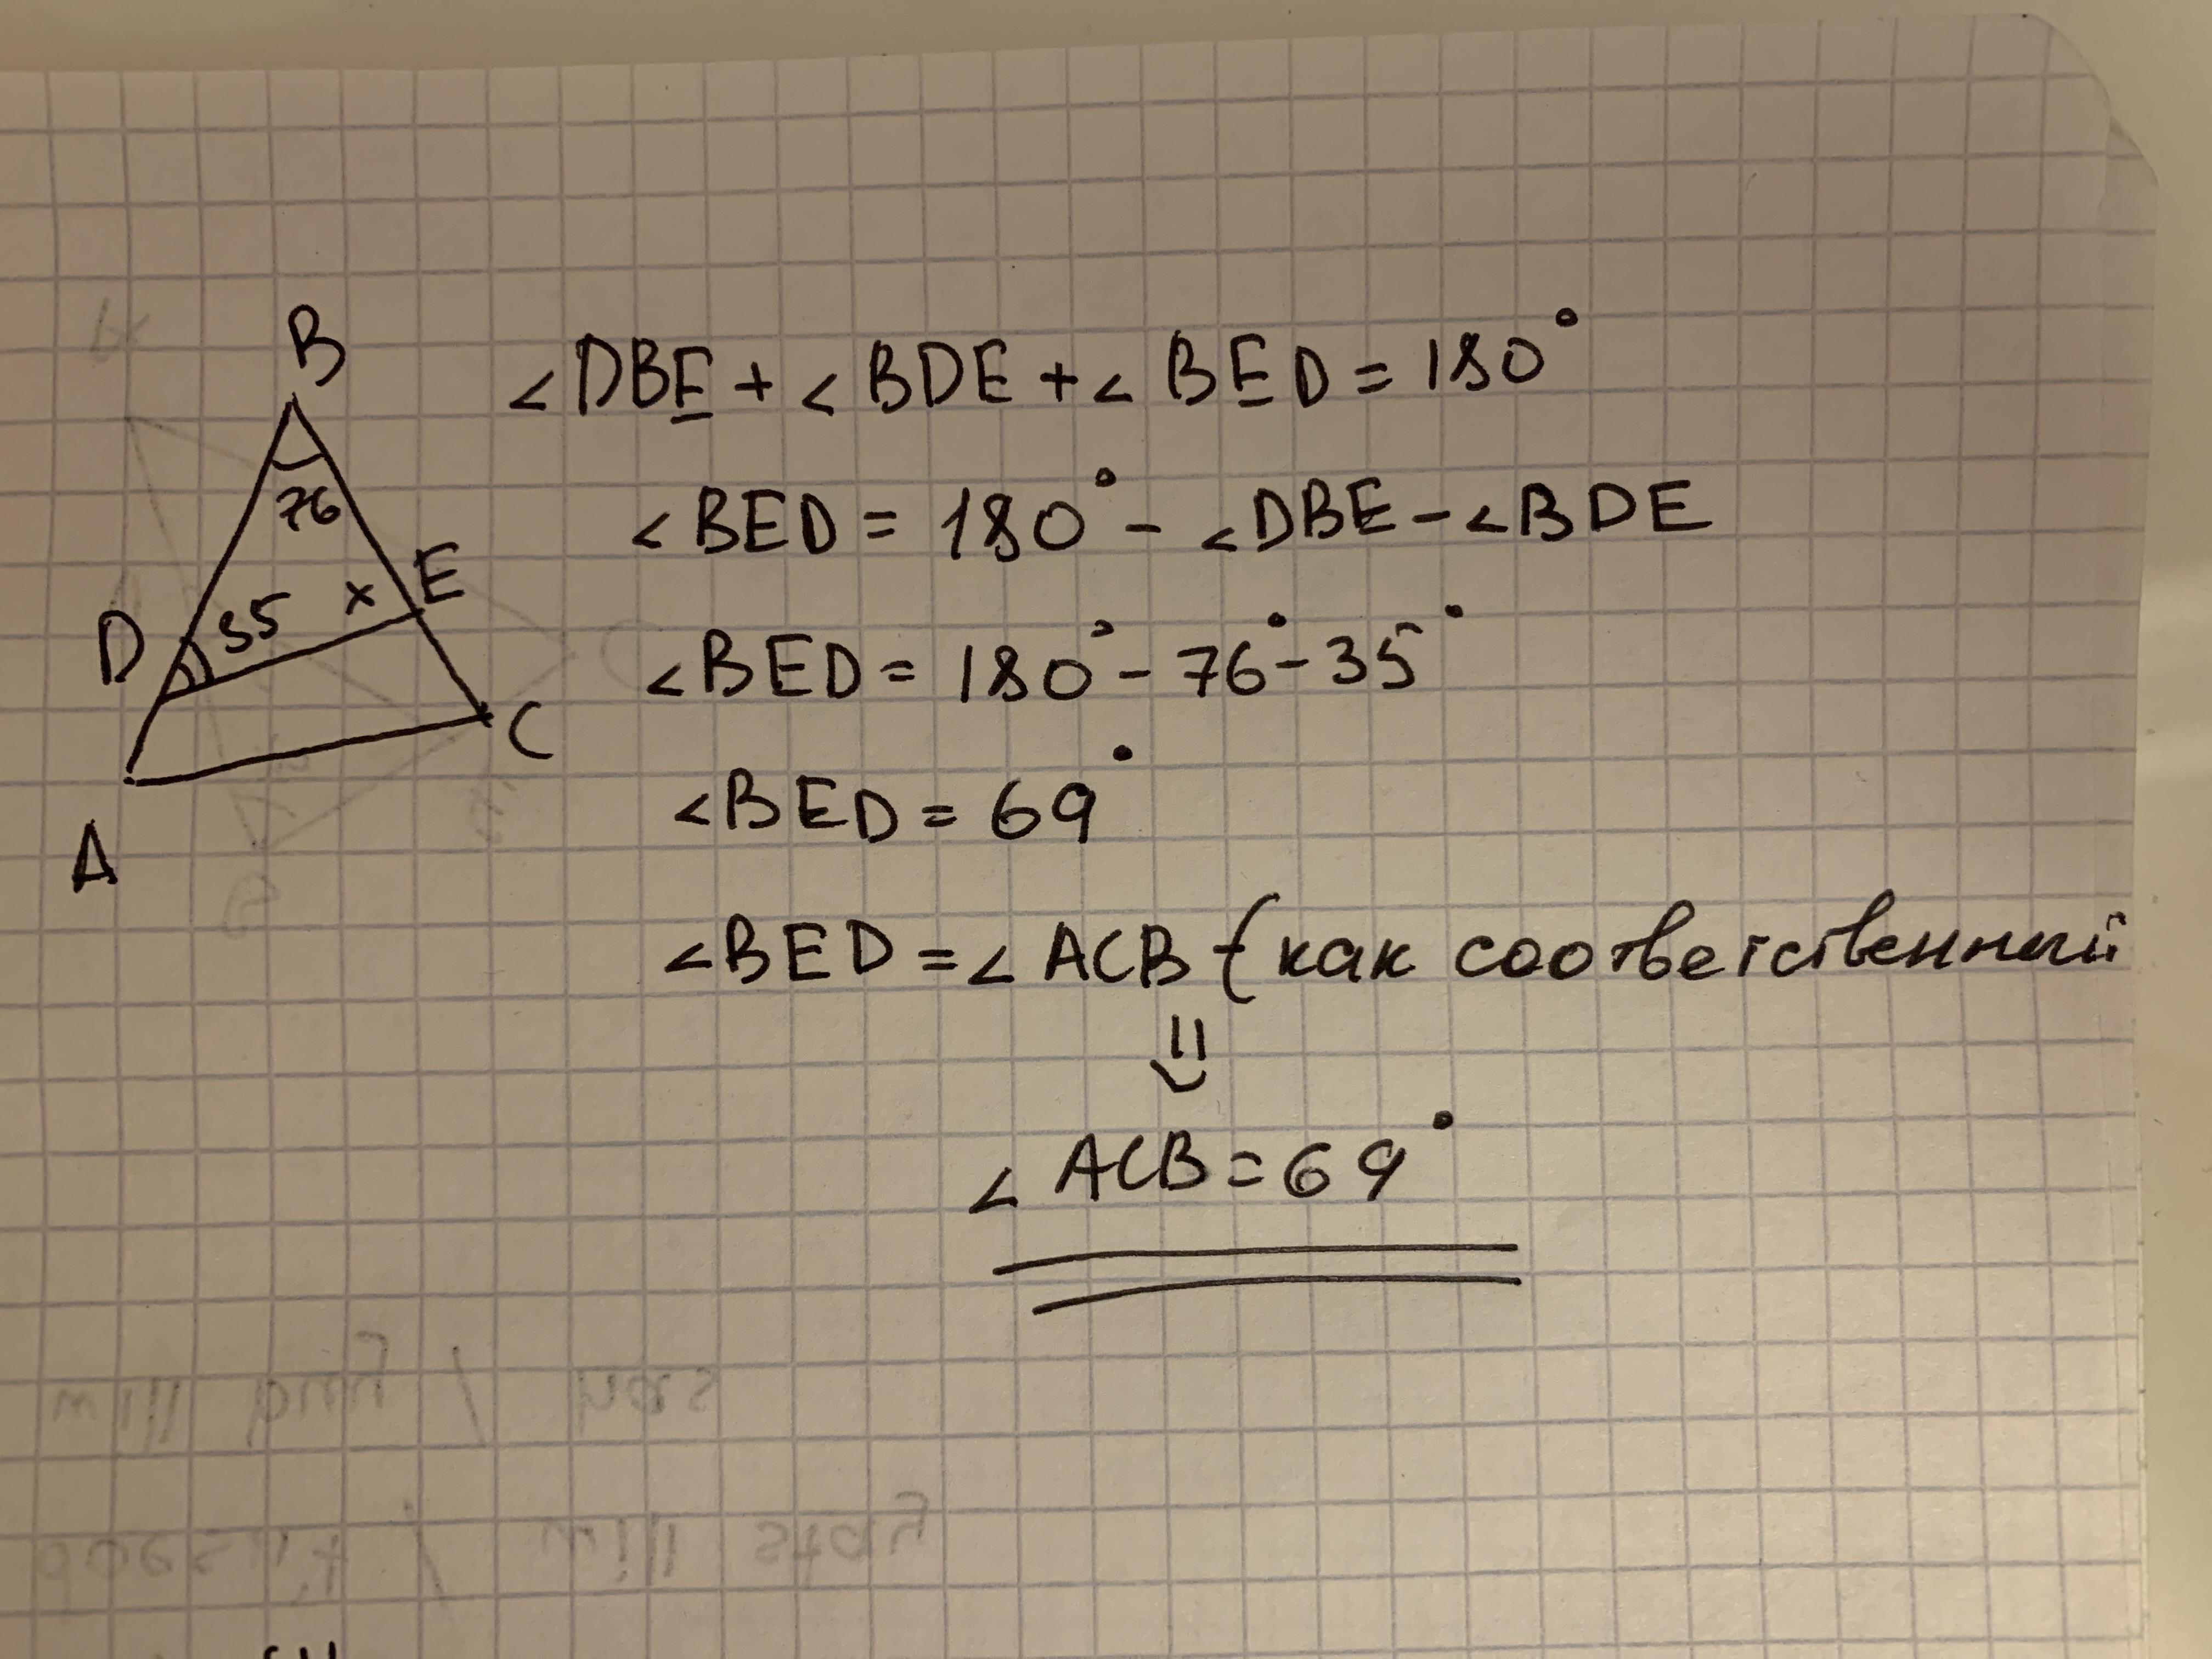 B
76
E
x
35
D
C
A
∠DBE + ∠BDE + ∠BED = 180°
∠BED = 180° - ∠DBE - ∠BDE
∠BED = 180° - 76° - 35°
∠BED = 69°
∠BED = ∠ACB - (как соответственный
⇓
∠ACB = 69°